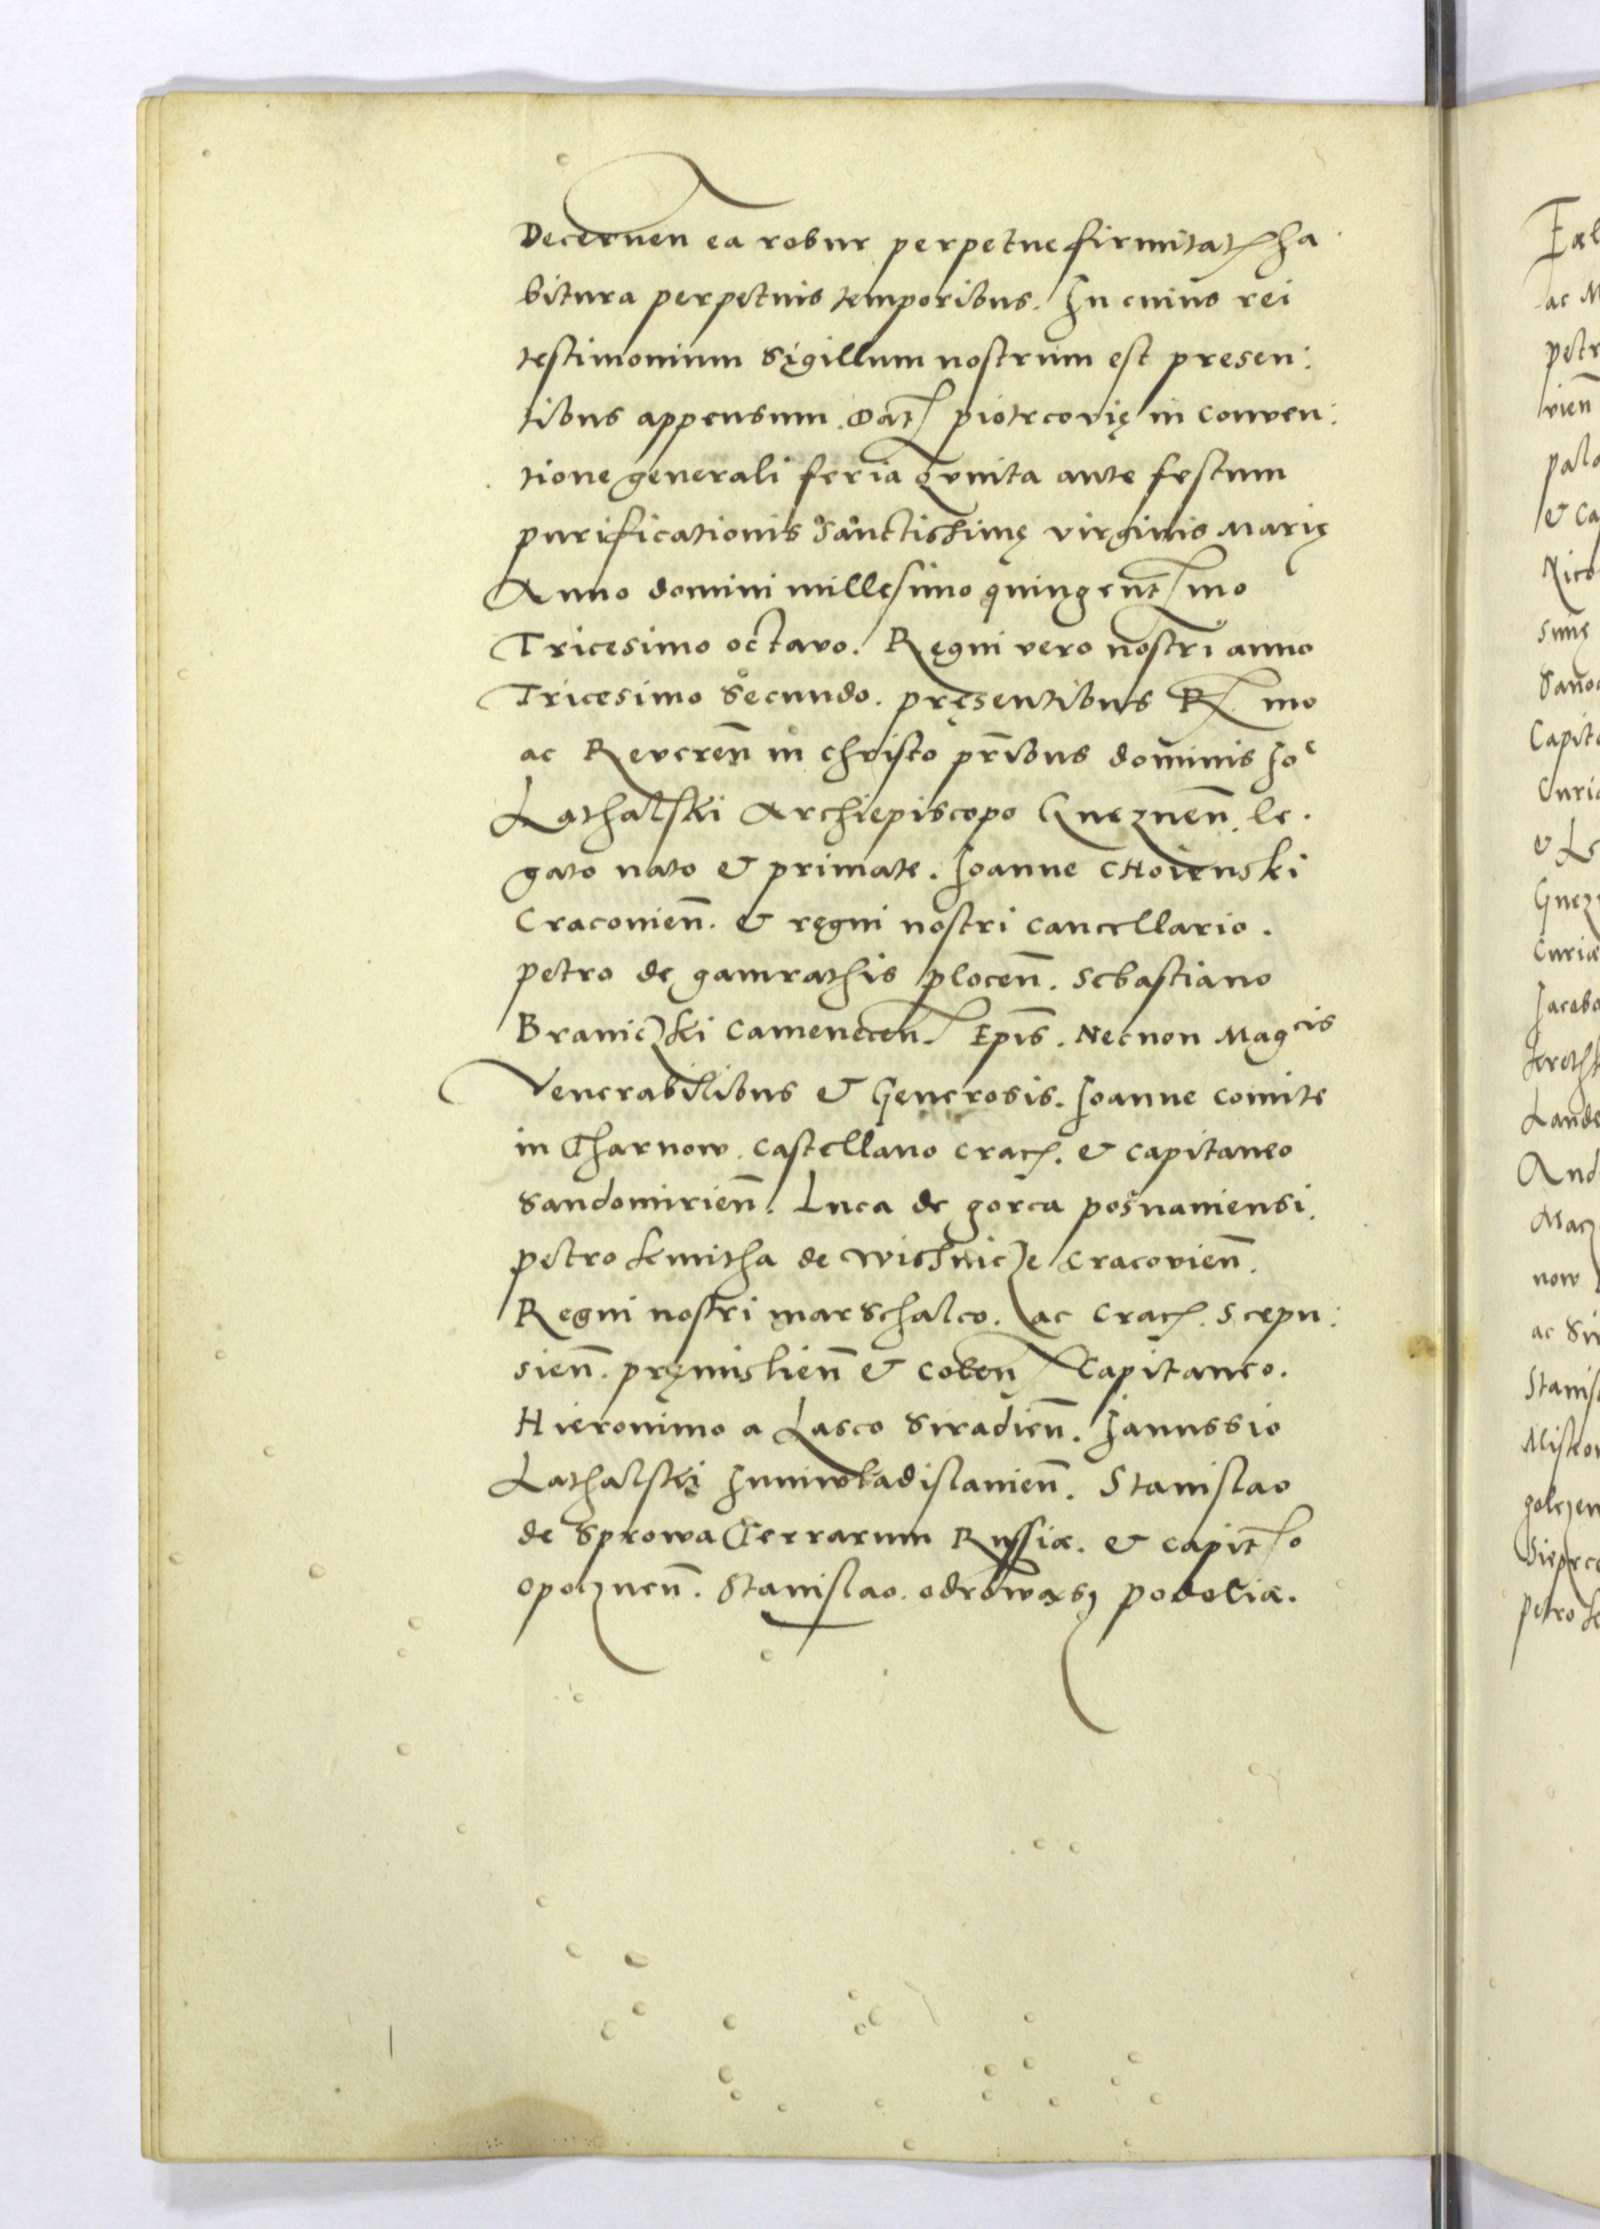 Decernen ea robur perpetue firmitat ha
bitura perpetuis temporibus. In cuius rei
testimonium Sigillum nostrum est presen:
tibus appensum. Dat piotrcovię in conven:
tione generali feria quinta ante festum
purificationis Sanctissimę virginis Marię
Anno domini millesimo quingentmo
Tricesimo octavo. Regni vero nostri anno
Tricesimo Secundo. pręsentibus R. mo
ac Reveren̄ in christo pr̄ibus dominis Ioe
Lathalski Archiepiscopo Gneznen̄. le.
gato nato & primate. Joanne CHoienski
Cracovien̄. & regni nostri cancellario.
petro de gamrathis plocen̄. Sebastiano
Braniczki camenecen. Ep̄is. Necnon Magcis
Venerabilibus & Generosis. Joanne comite
in Tharnow. castellano crac. & capitaneo
Sandomirien̄. Luca de gorca posnaniensi.
petro kmitha de wisnicze cracovien̄.
Regni nostri marschalco. ac crac. scepu:
sien̄. pręmislien̄ & colen capitaneo.
Hieronimo a Lasco Siradien̄. Janussio
Lathalski Juniwladislavien̄. Stanislao
de Sprowa Terrarum Russiæ. & capit o
opoznen̄. Stanislao. odrowasz podoliæ.
Petr
Capit
Gnez
Curiæ
Lande
now
Stanis
petro k